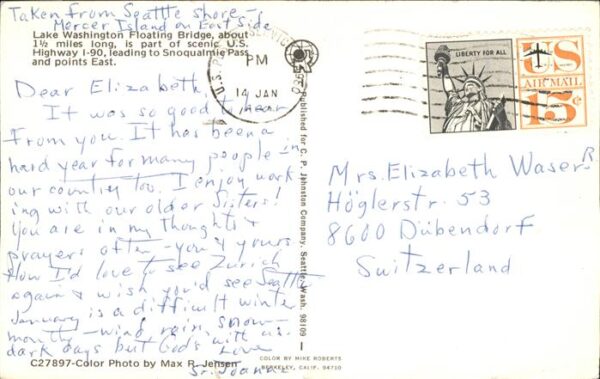 Taken from Seattle shore -
Mercer Island on East Side
Lake Washington Floating Bridge, about
1½ miles long, is part of scenic U.S.
Highway I-90, leading to Snoqualmie Pass
and points East.
Dear Elizabeth,
It was so good to hear
from you. It has been a
hard year for many people in
our country too. I enjoy work
ing with our older Sisters!
You are in my thoughts &
prayers often - you & yours
How I'd love to see Zurich
again & wish you'd see Seattle
January is a difficult winter
month - wind, rain, snow -
dark days but God's with us.
Love
Sr. Joanne
C27897-Color Photo by Max R. Jensen
Published for C. P. Johnston Company, Seattle, Wash. 98109
COLOR BY MIKE ROBERTS
BERKELEY, CALIF. 94710
U.S. P
PM
14 JAN
LIBERTY FOR ALL
US
AIR MAIL
15c
Mrs. Elizabeth Waser R
Höglerstr. 53
8600 Dübendorf
Switzerland